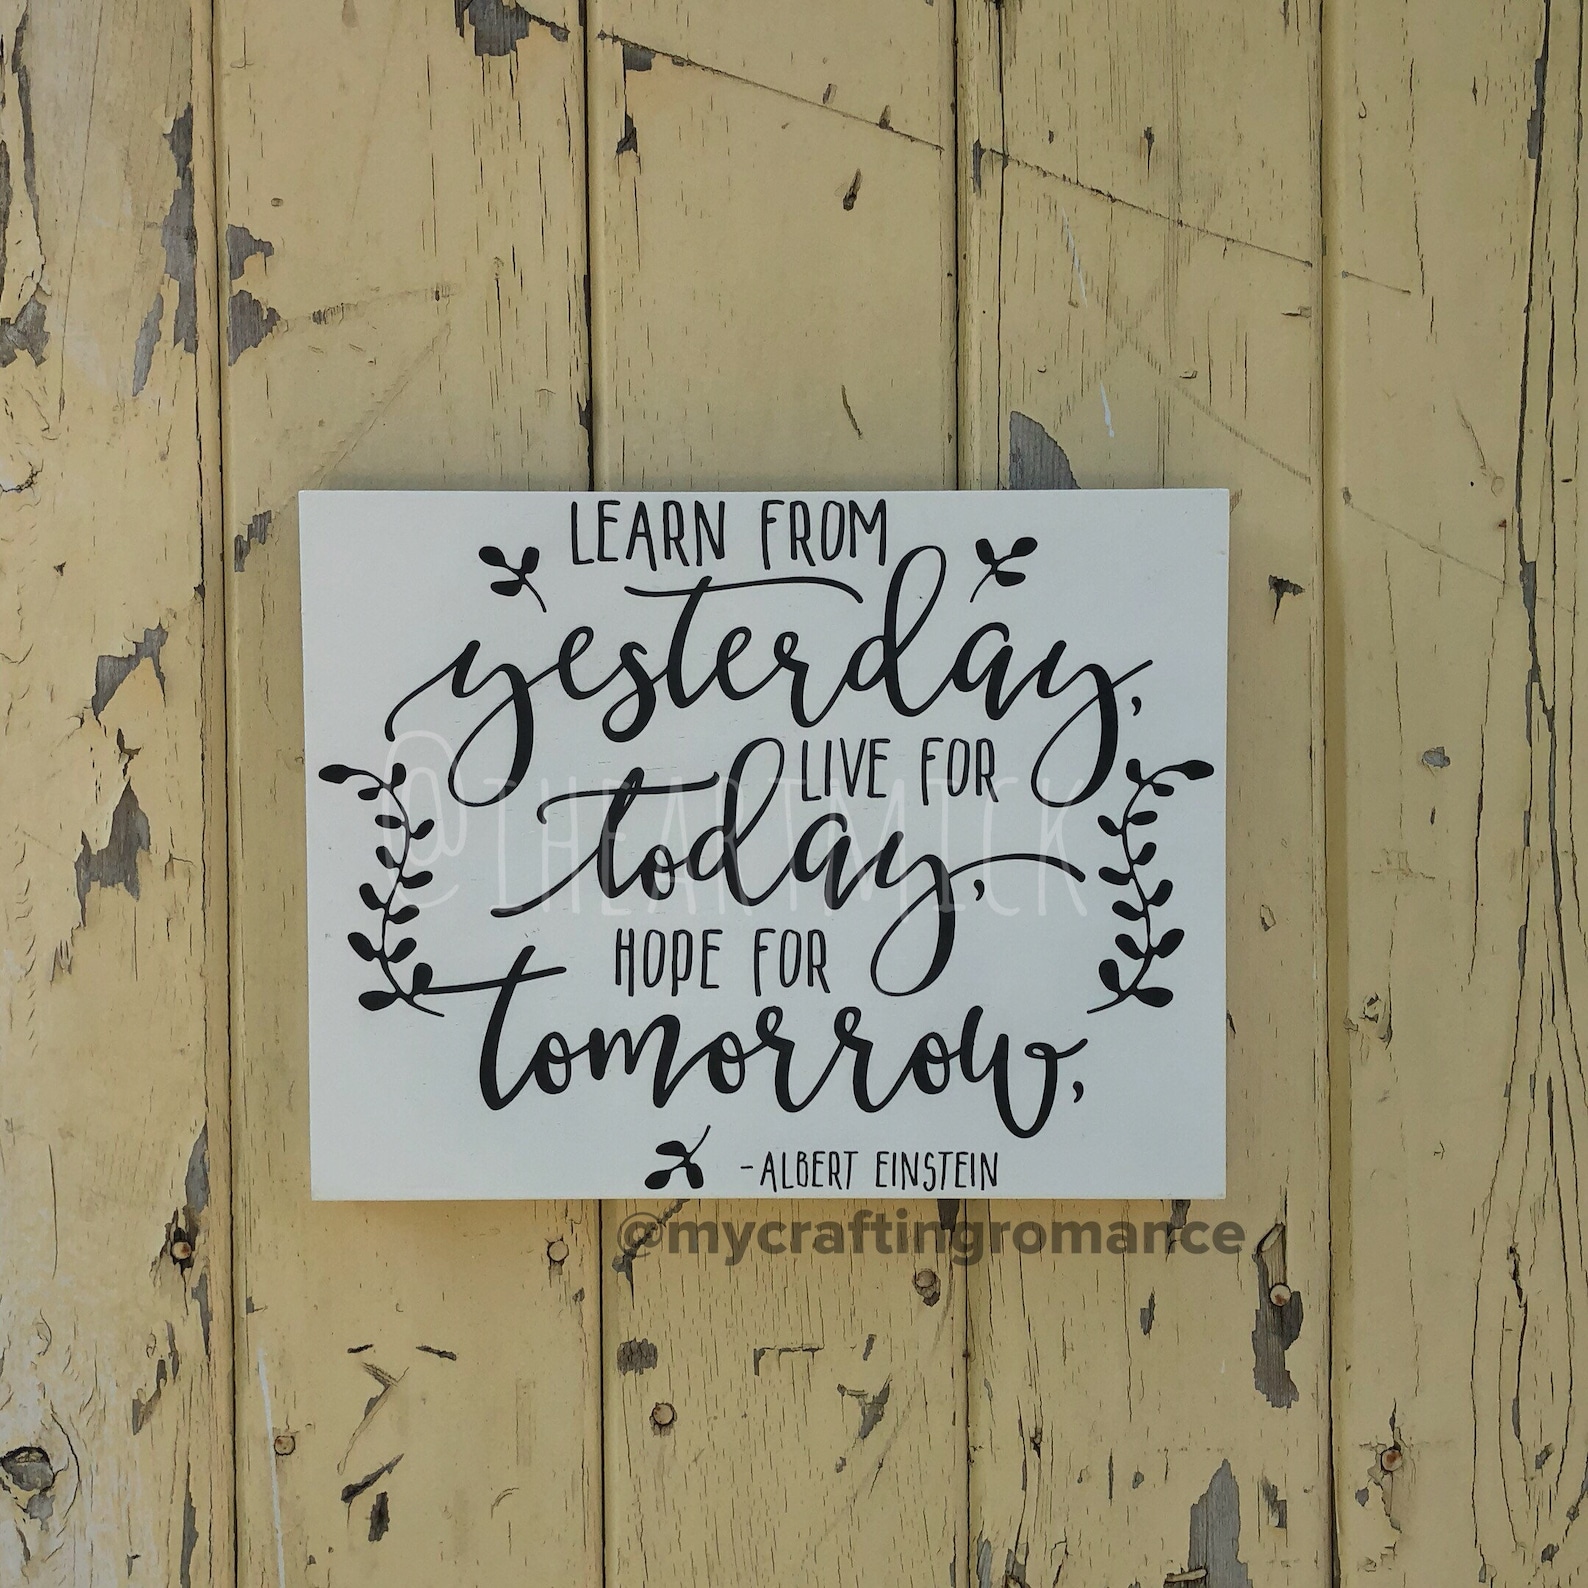 LEARN FROM
yesterday,
LIVE FOR
today,
HOPE FOR
tomorrow,
-ALBERT EINSTEIN
@IHEARTMICK
@mycraftingromance